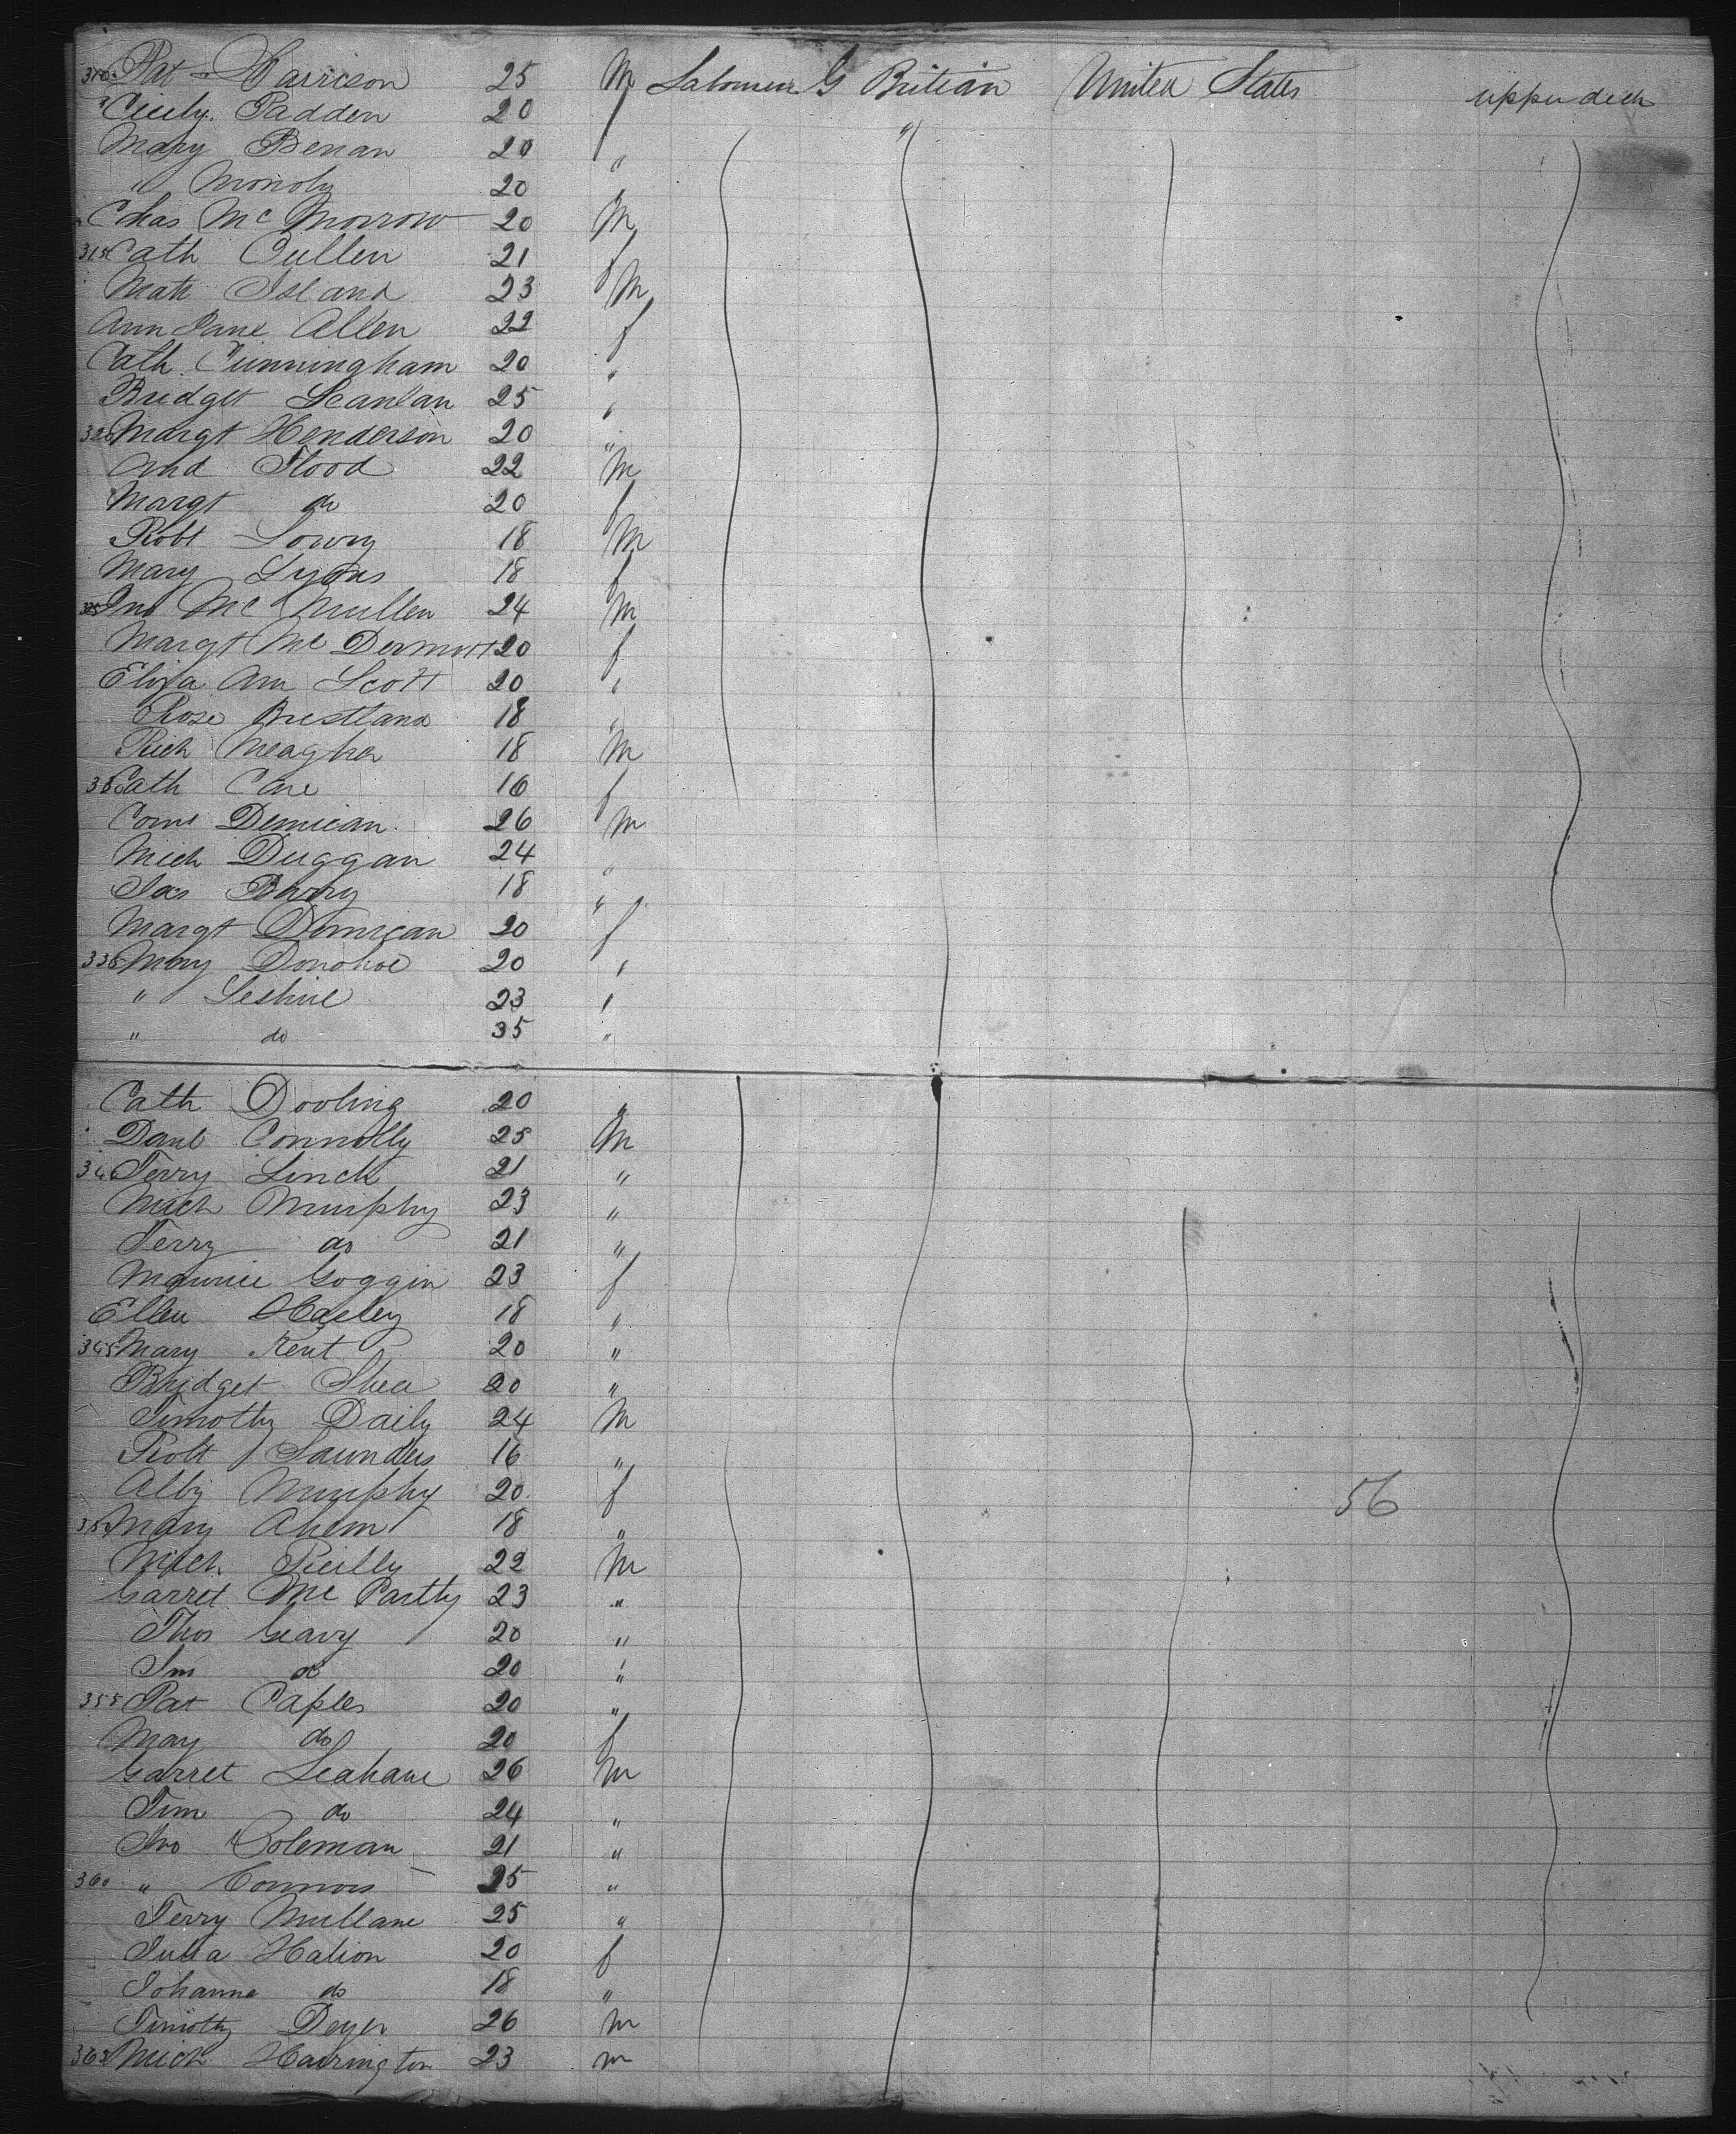 310 Pat Harrison 25 M Labourer G Britian United States upper deck
Cicily Padden 20 f
Mary Benan 20 "
" Monoly 20
Chas Mc Morrow 20 M
315 Cath Cullen 21 f
Matt Island 23 M
Ann Jane Allen 22 f
Cath Cunningham 20 "
Bridget Scanlan 25 "
320 Margt Henderson 20 "
And Flood 22 M
Margt do 20 f
Robt Lowry 18 M
Mary Lyons 18 f
325 Jno Mc Mullen 24 M
Margt Mc Dermott 20 f
Eliza Ann Scott 20 "
Rose Brestland 18 "
Rich Meagher 18 M
330 Cath Cane 16 f
Corns Denican 26 M
Mich Duggan 24 "
Jas Barry 18 "
Margt Denican 20 f
335 Mary Donohoe 20 "
" Leshire 23 "
" do 35 "
Cath Dooling 20 "
Danl Connolly 25 M
340 Terry Linck 21 "
Mich Murphy 23 "
Terry do 21 "
Maurice Goggin 23 f
Ellen Hailey 18 "
345 Mary Kent 20 "
Bridget Shea 20 "
Timothy Daily 24 M
Robt Saunders 16 "
Alby Murphy 20 f 56
350 Mary Ahern 18 "
Mich Reilly 22 M
Garret Mc Cartty 23 "
Thos Geavy 20 "
Jno do 20 "
355 Pat Caples 20 "
May do 20 f
Garret Leahane 26 M
Tim do 24 "
Jno Coleman 21 "
360 " Connors 25 "
Terry Mullane 25 "
Julia Halion 20 f
Johanna do 18 "
Timothy Deyer 26 M
365 Mich Harrington 23 M